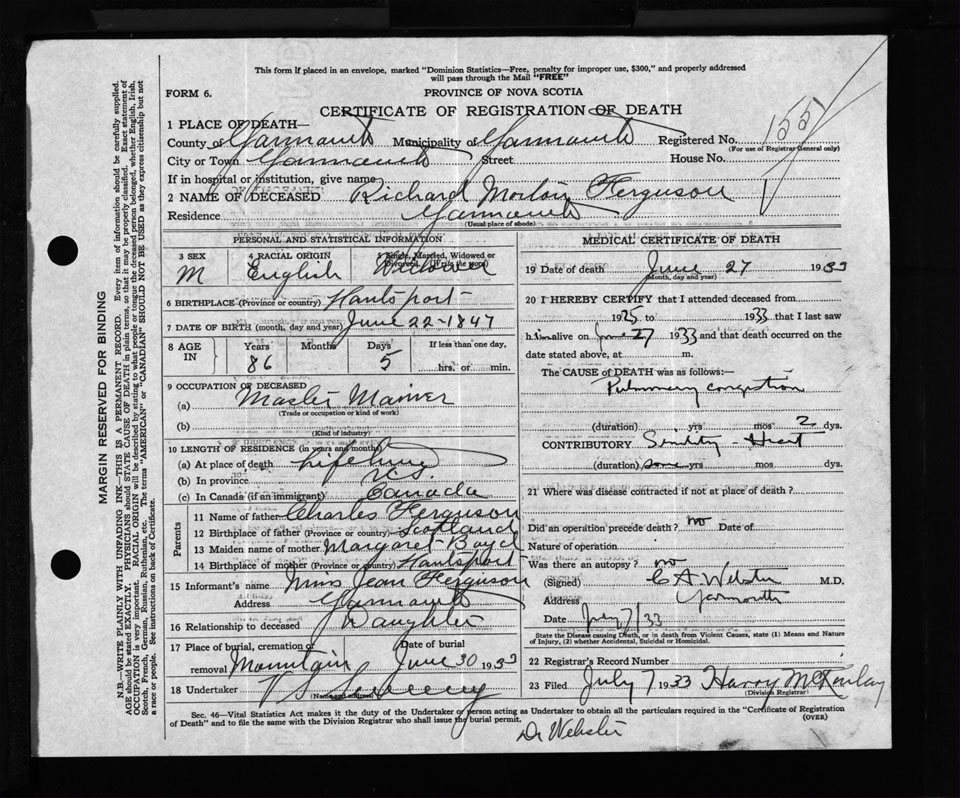 This form if placed in an envelope, marked "Dominion Statistics—Free, penalty for improper use, $300," and properly addressed
will pass through the Mail "FREE"
FORM 6. PROVINCE OF NOVA SCOTIA
CERTIFICATE OF REGISTRATION OF DEATH
1 PLACE OF DEATH—
County of Yarmouth Municipality of Yarmouth Registered No. 155
(For use of Registrar General only)
City or Town Yarmouth Street House No.
If in hospital or institution, give name
2 NAME OF DECEASED Richard Ferguson
Residence Yarmouth
(Usual place of abode)
PERSONAL AND STATISTICAL INFORMATION
3 SEX 4 RACIAL ORIGIN 5 Single, Married, Widowed or
Divorced (Write the word)
M English Widower
6 BIRTHPLACE (Province or country) Hantsport
7 DATE OF BIRTH (month, day and year) June 22-1847
8 AGE IN Years Months Days If less than one day,
86 5 hrs. or min.
9 OCCUPATION OF DECEASED
(a) Master Mariner
(Trade or occupation or kind of work)
(b)
(Kind of industry)
10 LENGTH OF RESIDENCE (in years and months)
(a) At place of death Lifetime
(b) In province N.S.
(c) In Canada (if an immigrant) Canada
Parents
11 Name of father Charles Ferguson
12 Birthplace of father (Province or country) Scotland
13 Maiden name of mother Margaret
14 Birthplace of mother (Province or country) Hantsport
15 Informant's name Miss Jean Ferguson
Address Yarmouth
16 Relationship to deceased Daughter
17 Place of burial, cremation or Date of burial
removal Mountain June 30 1933
18 Undertaker V S Sweeny
(Name and address)
MEDICAL CERTIFICATE OF DEATH
19 Date of death June 27 1933
(Month, day and year)
20 I HEREBY CERTIFY that I attended deceased from
1925 to 1933 that I last saw
him alive on June 27 1933 and that death occurred on the
date stated above, at m.
The CAUSE of DEATH was as follows:—
Pulmonary congestion
(duration) yrs mos 2 dys.
CONTRIBUTORY Senility - Heart
(duration) some yrs mos dys.
21 Where was disease contracted if not at place of death?
Did an operation precede death? no Date of
Nature of operation
Was there an autopsy? no
(Signed) C A Webster M.D.
Address Yarmouth
Date July 7/33
State the Disease causing Death, or in death from Violent Causes, state (1) Means and Nature
of Injury, (2) whether Accidental, Suicidal or Homicidal.
22 Registrar's Record Number
23 Filed July 7 1933 Harry McKinlay
(Division Registrar)
Sec. 46—Vital Statistics Act makes it the duty of the Undertaker or person acting as Undertaker to obtain all the particulars required in the "Certificate of Registration
of Death" and to file the same with the Division Registrar who shall issue the burial permit. (OVER)
Dr Webster
MARGIN RESERVED FOR BINDING
N.B.—WRITE PLAINLY WITH UNFADING INK—THIS IS A PERMANENT RECORD. Every item of information should be carefully supplied.
AGE should be stated EXACTLY. PHYSICIANS should STATE CAUSE OF DEATH in plain terms, so that it may be properly classified. Exact statement of
OCCUPATION is very important. RACIAL ORIGIN will be described by stating to what people or tongue the deceased person belonged, whether English, Irish,
Scotch, French, German, Russian, Ruthenian, etc. The terms "AMERICAN" or "CANADIAN" SHOULD NOT BE USED as they express citizenship but not
a race or people. See instructions on back of Certificate.